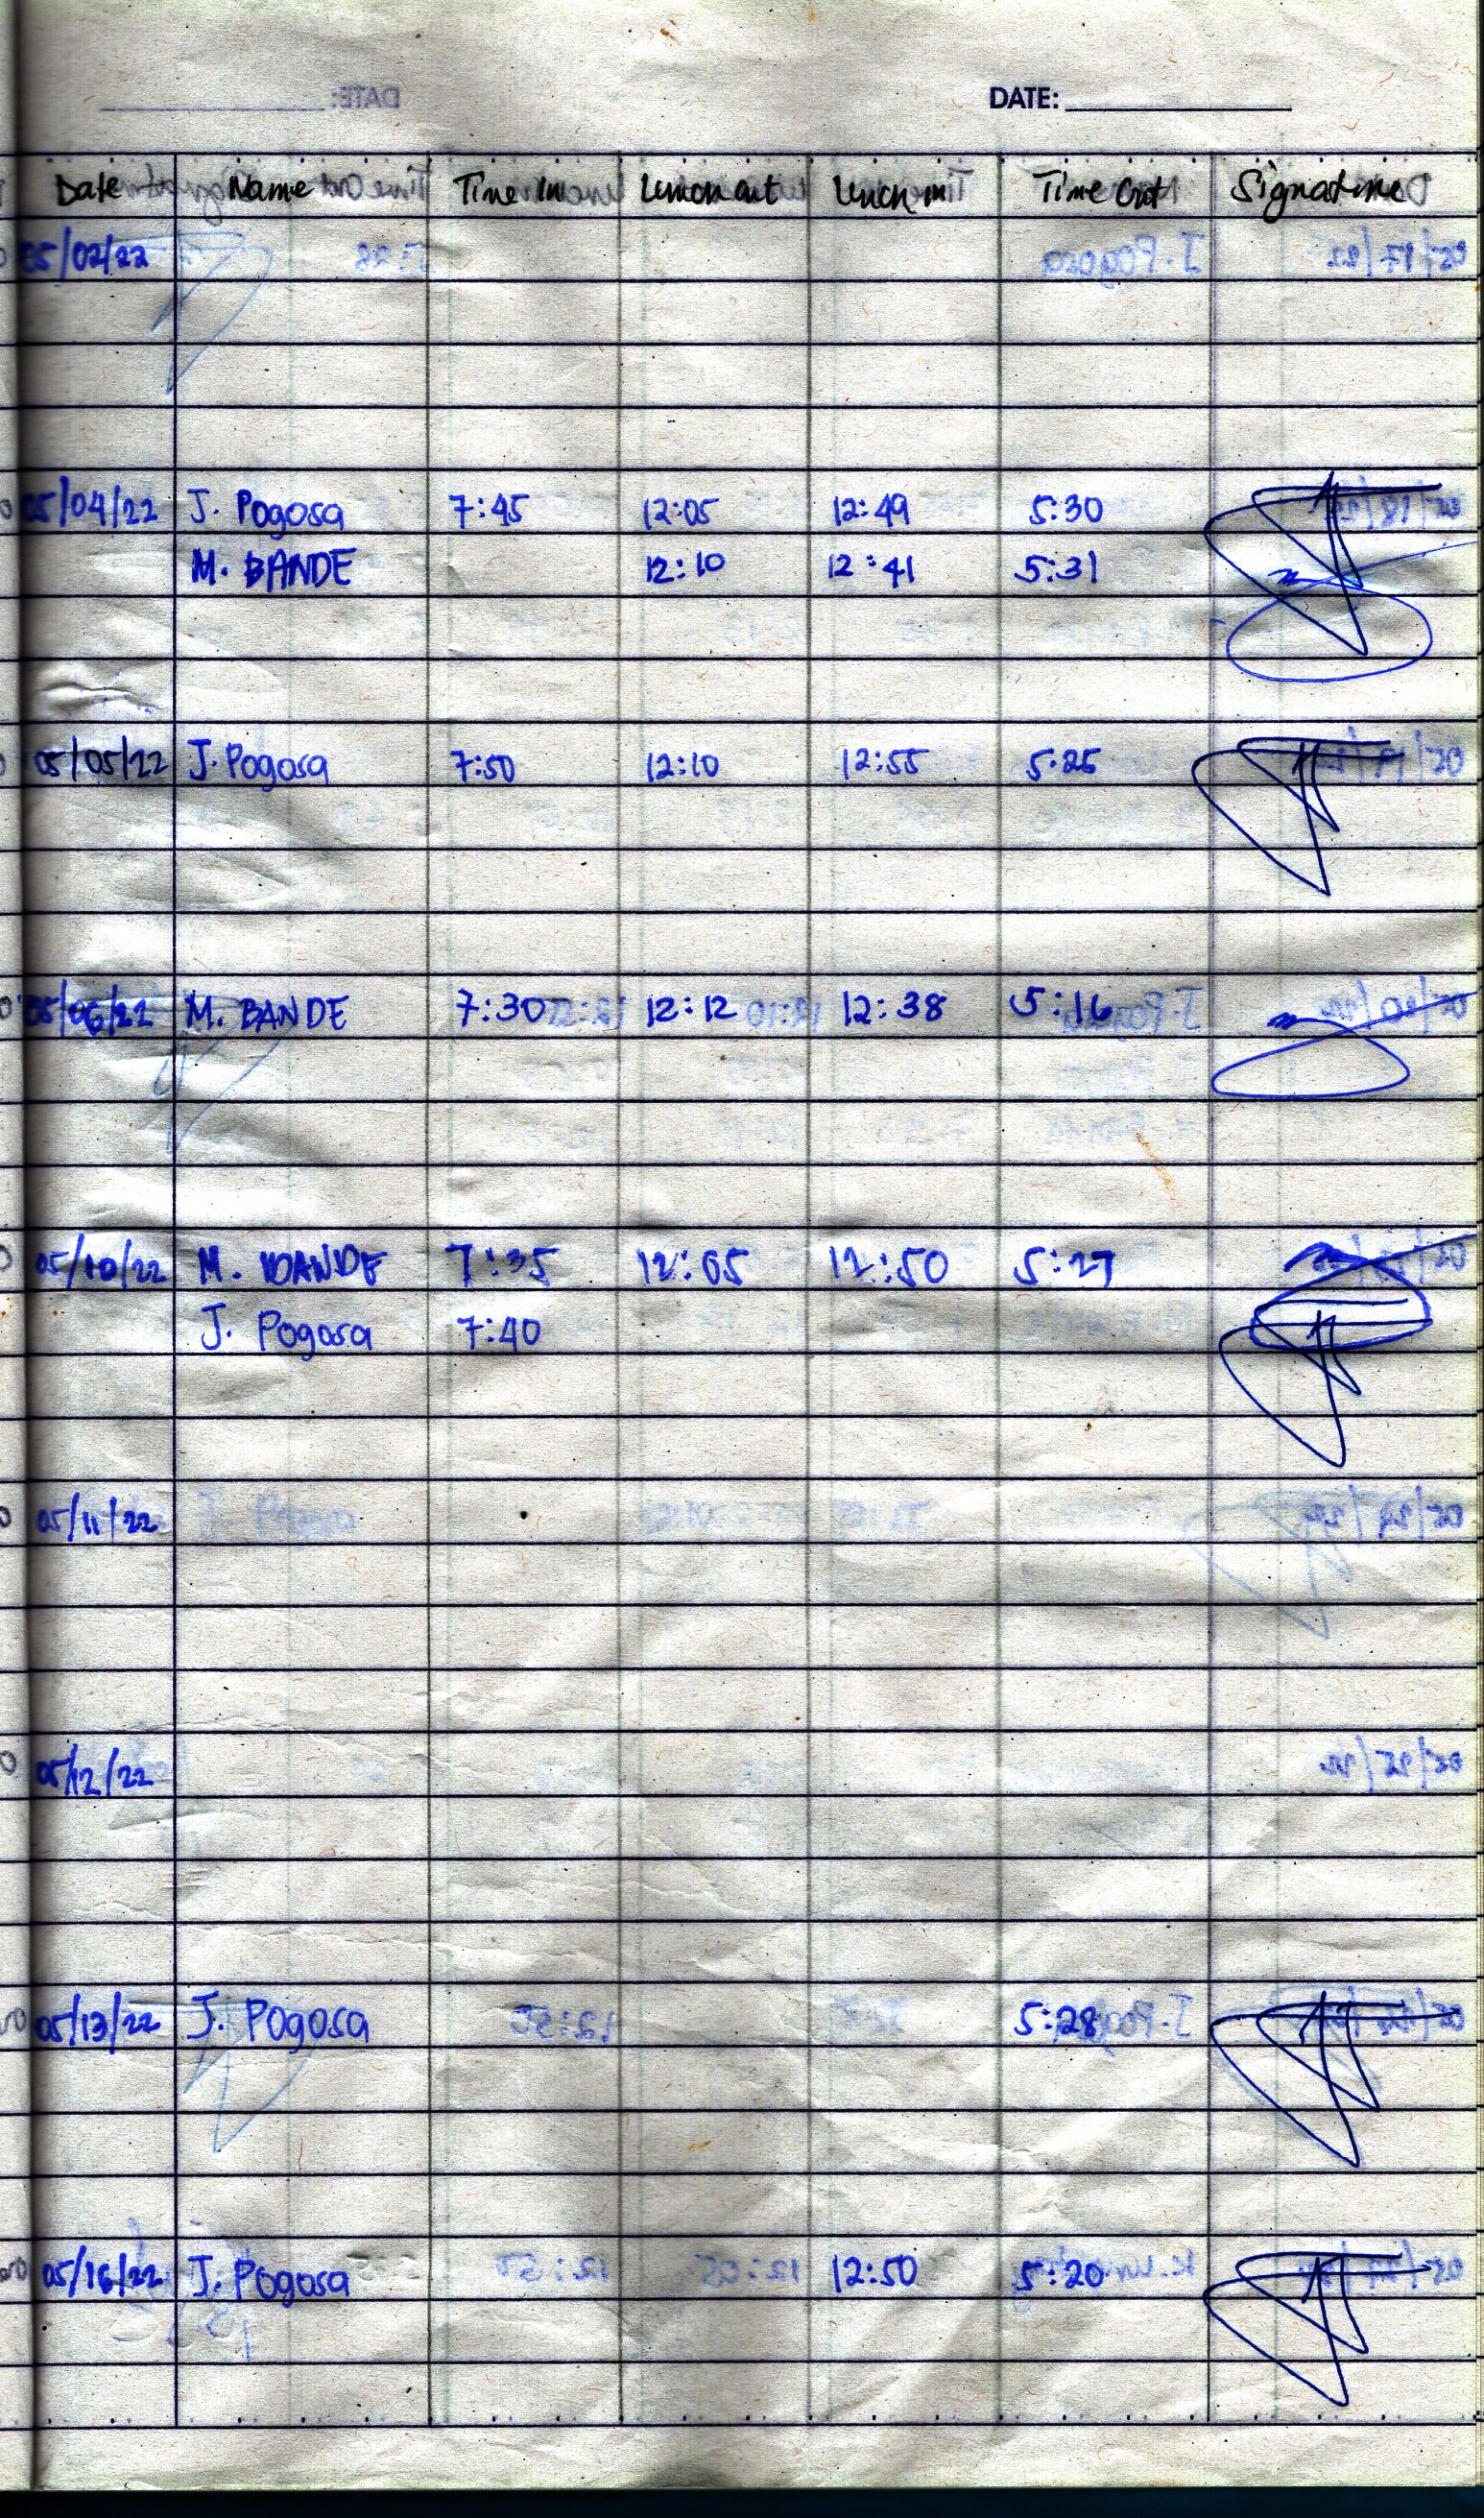 DATE:
Date Name Time In Lunch out Lunch in Time Out Signature
05/02/22
05/04/22 J. Pogosa 7:45 12:05 12:49 5:30
M. BANDE 12:10 12:41 5:31
05/05/22 J. Pogosa 7:50 12:10 12:55 5:25
05/06/22 M. BANDE 7:30 12:12 12:38 5:16
05/10/22 M. BANDE 7:35 12:05 12:50 5:27
J. Pogosa 7:40
05/11/22
05/12/22
05/13/22 J. Pogosa 5:28
05/16/22 J. Pogosa 12:50 5:20